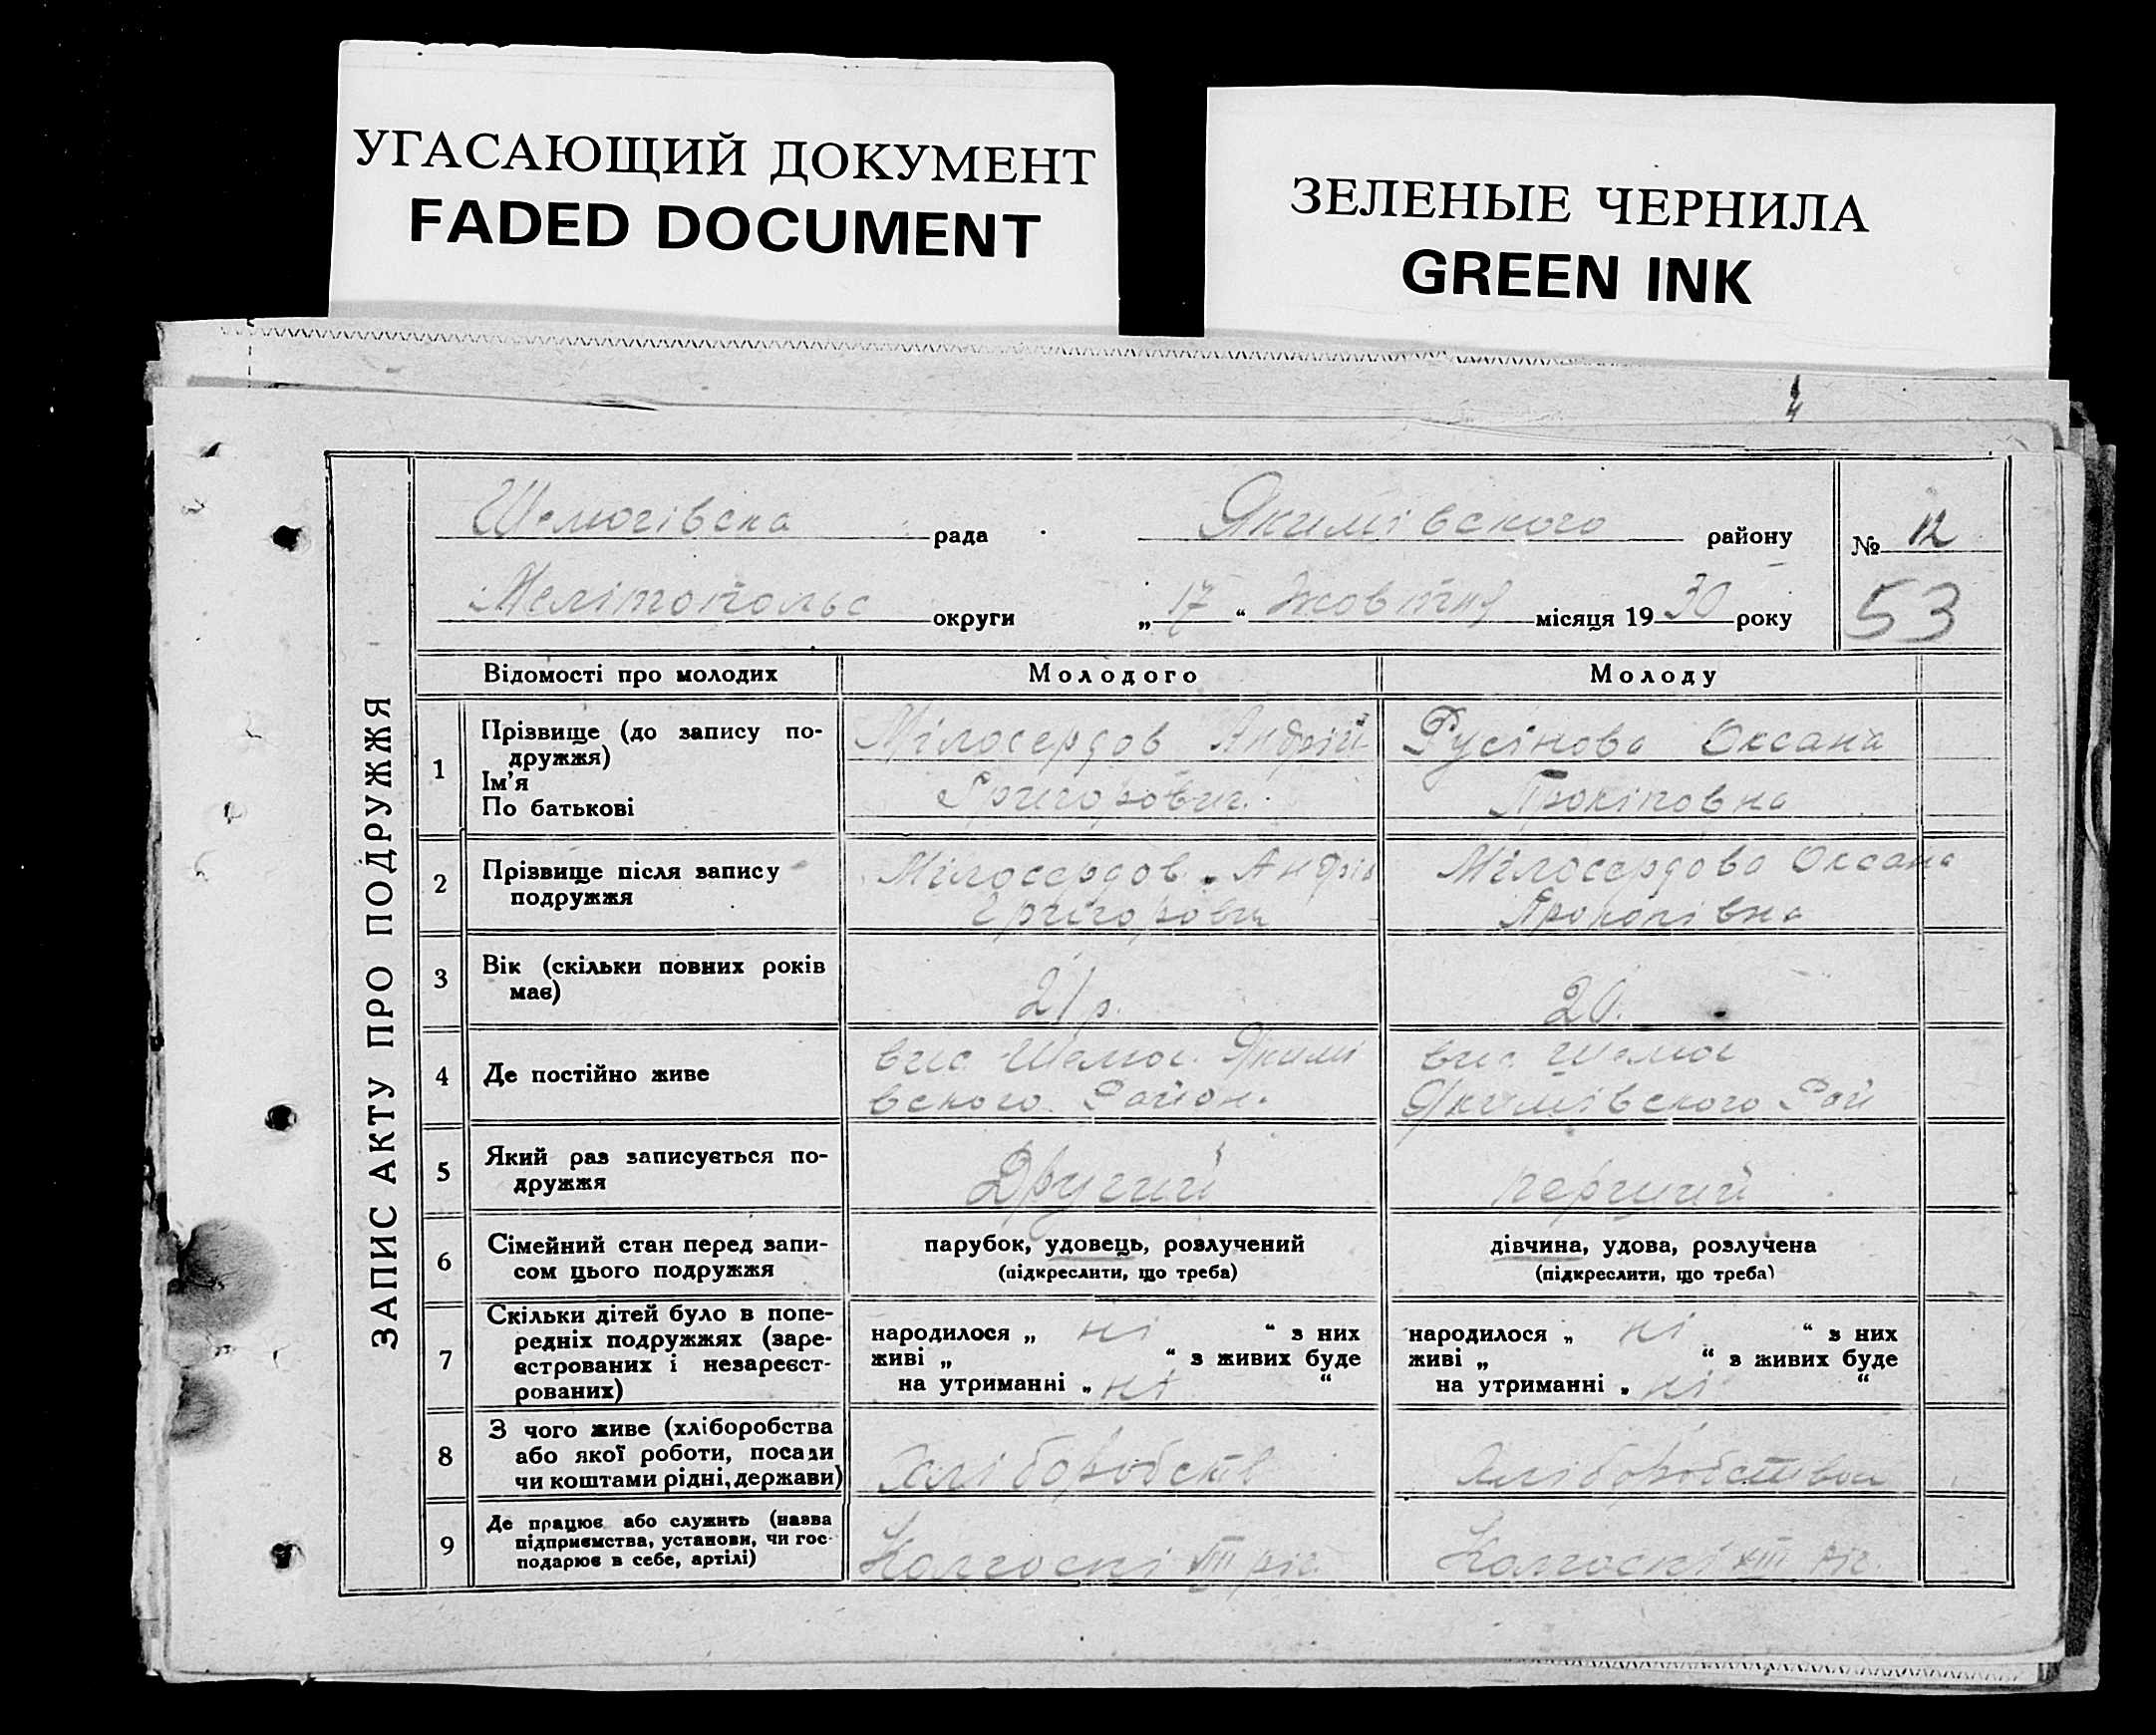 УГАСАЮЩИЙ ДОКУМЕНТ
FADED DOCUMENT
ЗЕЛЕНЫЕ ЧЕРНИЛА
GREEN INK
ЗАПИС АКТУ ПРО ПОДРУЖЖЯ
Шемогівска рада Якимівського району № 12
Мелітопольс округи „ 17 “ Жовтня місяця 19 30 року 53
Відомості про молодих Молодого Молоду
1 Прізвище (до запису по-
дружжя)
Ім’я
По батькові
Мілосердов Андрій
Григорович.
Русінова Оксана
Прокіповна
2 Прізвище після запису
подружжя
Мілосердов Андрій
Григорович
Мілосердова Оксана
Прокопівна
3 Вік (скільки повних років
має)
21 р.
20.
4 Де постійно живе
вис Шемог. Якимі
вского Район.
вис Шемог
Якимівского Рай
5 Який раз записується по-
дружжя
Другий
перший
6 Сімейний стан перед запи-
сом цього подружжя
парубок, удовець, розлучений
(підкреслити, що треба)
дівчина, удова, розлучена
(підкреслити, що треба)
7 Скільки дітей було в попе-
редніх подружжях (заре-
єстрованих і незареєст-
рованих)
народилося „ ні “ з них
живі „ “ з живих буде
на утриманні „ ні “
народилося „ ні “ з них
живі „ “ з живих буде
на утриманні „ ні “
8 З чого живе (хліборобства
або якої роботи, посади
чи коштами рідні, держави)
Хліборобств
Хліборобством
9 Де працює або служить (назва
підприємства, установи, чи гос-
подарює в себе, артілі)
Колгоспі XIII річ.
Колгоспі XIII річ.